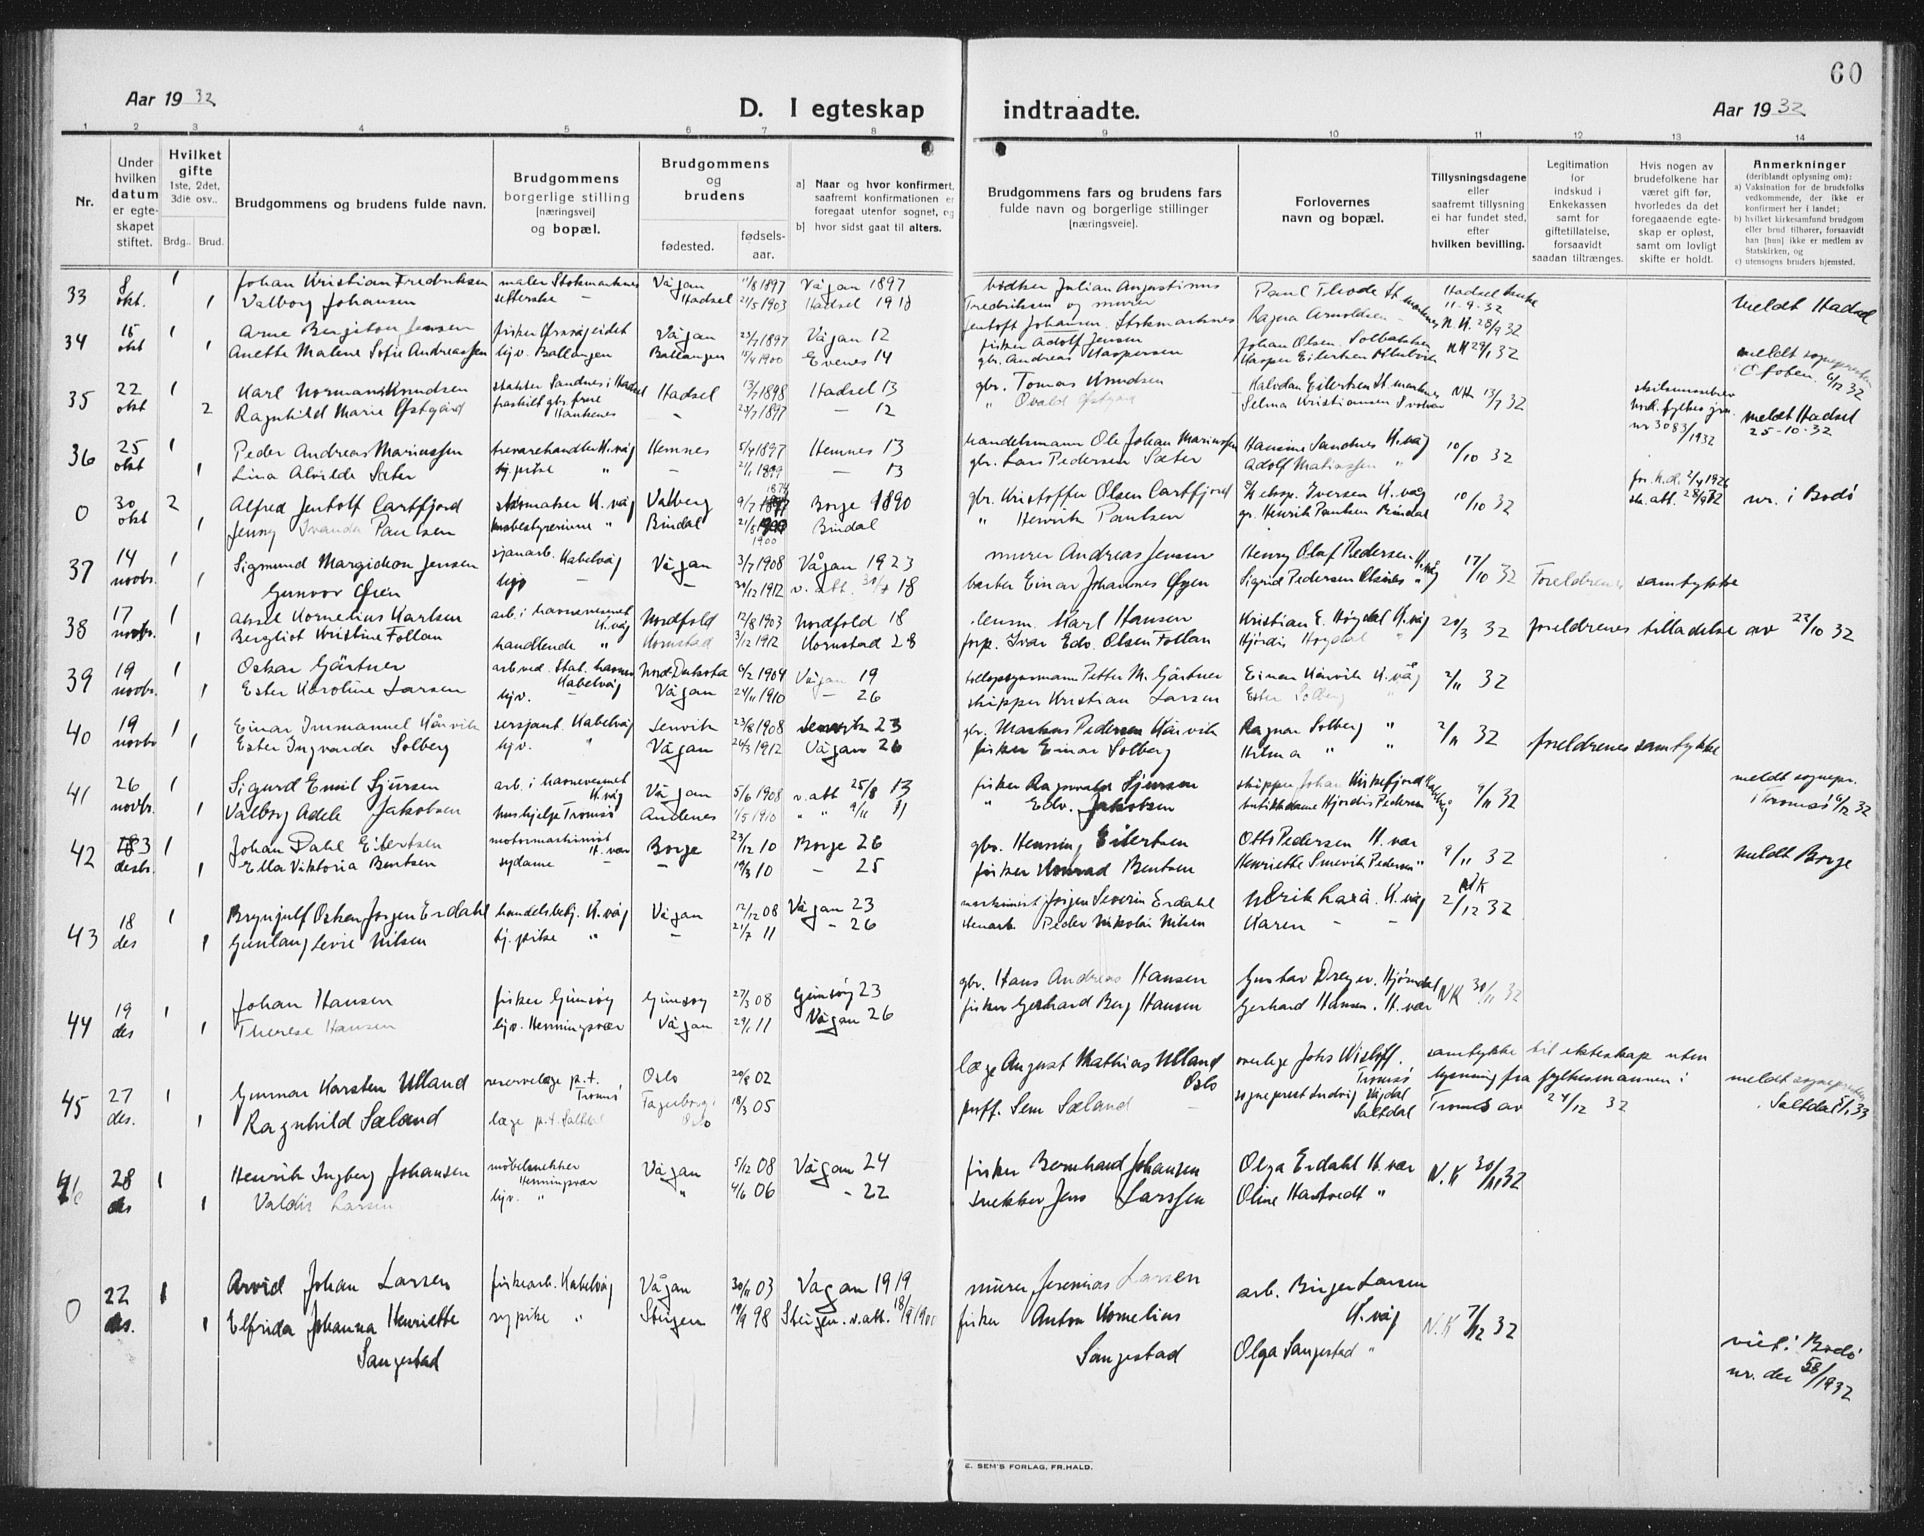 60
Aar 1932
D. I egteskap indtraadte.
Aar 1932
1 2 3 4 5 6 7 8 9 10 11 12 13 14
Nr.
Under hvilken datum er egteskapet stiftet.
Hvilket gifte 1ste, 2det, 3die osv..
Brdg.. Brud.
Brudgommens og brudens fulde navn.
Brudgommens borgerlige stilling [næringsvei] og bopæl.
Brudgommens og brudens
fødested.
fødsels-aar.
a] Naar og hvor konfirmert, saafremt konfirmationen er foregaat utenfor sognet, og
b] hvor sidst gaat til alters.
Brudgommens fars og brudens fars fulde navn og borgerlige stillinger [næringsveie].
Forlovernes navn og bopæl.
Tillysningsdagene eller saafremt tillysning ei har fundet sted, efter hvilken bevilling.
Legitimation for indskud i Enkekassen samt for giftetillatelse, forsaavidt saadan tiltrænges.
Hvis nogen av brudefolkene har været gift før, hvorledes da det foregaaende egteskap er opløst, samt om lovligt skifte er holdt.
Anmerkninger (deriblandt oplysning om):
a) Vaksination for de brudefolks vedkommende, der ikke er konfirmert her i landet;
b) hvilket kirkesamfund brudgom eller brud tilhører, forsaavidt han [hun] ikke er medlem av Statskirken, og
c) utensogns bruders hjemsted.
33 8 okt. 1 Johan Kristian Fredriksen maler Stokmarknes Vågan 11/8 1897 Vågan 1897 bødker Julian Augustinus Paul Thode
1 Valborg Johansen Hadsel 21/5 1903 Hadsel 1918 Fredriksen og murer Ragna Arnoldsen 11-9-32 meldt Hadsel
Jentoft Johansen. Stokmarknes
34 15 okt 1 Arne Bergiton Jensen fisker Ørsvågeidet Vågan 23/7 1897 Vågan 12 fisker Adolf Jensen Johan Olsen. N.K. 28/9 32
1 Anette Malene Sofie Andreassen hjv. Ballangen Ballangen 11/4 1900 Evenes 14 gbr. Andreas Kaspersen Kasper Eilertsen N.K 29/1 32 meldt sognepresten i Ofoten. 6/12 32
35 22 okt 1 Karl Norman Knudsen Sandnes i Hadsel Hadsel 13/7 1898 Hadsel 13 gbr. Tomas Knudsen Halvdan Eilertsen St. marknes N.K 13/7 32
2 Ragnhild Marie Østgård fraskilt gbr. frue Hanknes - 23/7 1897 - 12 " Ovald Østgård Selma Kristiansen Svolvær nr 3083/1932 meldt Hadsel 25-10-32
36 25 okt 1 Peder Andreas Mariussen trevarehandler K.våg Hemnes 5/4 1897 Hemnes 13 handelsmann Ole Johan Mariussen Hansine Sandnes K.våg 10/10 32
1 Lina Alvilde Sæter sy.pike " - 21/1 1899 - 13 gbr. Lars Pedersen Sæter Adolf Matiassen "
0 30 okt 2 Alfred Jentoft Cartfjord skomaker K.våg Valberg 9/7 1874 Borge 1890 gbr. Kristoffer Olsen Cartfjord Iversen K.våg 10/10 32 sk. att. 28/9 32 nr. i Bodø
1 Jenny Ivanda Paulsen " Bindal 21/5 1900 Bindal " Henrik Paulsen gr. Henrik Paulsen Bindal
37 14 novbr. 1 Sigmund Margidon Jensen sjauarb. Kabelvåg Vågan 3/7 1908 Vågan 1923 murer Andreas Jensen Henry Olaf Pedersen. K.våg 17/10 32 Foreldrenes samtykke
1 Gunvor Øien hjv - - 30/12 1912 v. att. 30/7 18 barber Einar Johannes Øyen Sigrid Pedersen "
38 17 novbr. 1 Aksel Kornelius Karlsen arb. i havnevesenet K.våg Nordfold 12/8 1903 Nordfold 18 Karl Hansen Kristian E. Høydal K.våg 20/3 32 foreldrenes tilladelse av 22/10 32
1 Bergliot Kristine Follan handlende " Kornstad 3/12 1912 Kornstad 28 forp. Ivar Edv. Olsen Follan Hjørdis Høydal "
39 19 novbr. 1 Oskar Gärtner arb ved. Stat. havnev Kabelvåg Nord-Dakota 6/2 1904 Vågan 19 Petter M. Gärtner Einar Kårvik K.våg 2/11 32
1 Ester Karoline Larsen hjv. - Vågan 24/11 1910 - 26 skipper Kristian Larsen Ester Solberg "
40 19 novbr 1 Einar Immanuel Kårvik sersjant. Kabelvåg Lenvik 23/8 1908 Lenvik 23 gbr. Markus Pedersen Kårvik Ragnar Solberg " 2/11 32 foreldrenes samtykke
1 Ester Ingvarda Solberg hjv. " Vågan 26/3 1912 Vågan 26 fisker Einar Solberg Hilma " "
41 26 novbr. 1 Sigurd Emil Sjursen arb. i havnevesenet K.våg Vågan 5/6 1908 v. att 25/8 13 fisker Ragnvald Sjursen skipper Johan Kirkefjord Kabelvåg 9/11 32 meldt sognepr. i Tromsø 6/12 32
1 Valborg Adele Jakobsen hushjelp Tromsø Andenes 1/5 1910 " " 9/11 11 " Edv. Jakobsen butikkdame Hjørdis Pedersen
42 3 desbr. 1 Johan Dahl Eilertsen motormaskinist H.vær Borge 23/12 10 Borge 26 gbr. Henning Eilertsen Otto Pedersen H.vær 9/11 32 meldt Borge
1 Ella Viktoria Bentsen sydame - - 19/3 10 - 25 fisker Konrad Bentsen Henriette Smevik Pedersen "
43 18 des 1 Brynjulf Oskar Jørgen Erdahl handelsbetj. K.våg Vågan 12/12 08 Vågan 23 maskinist Jørgen Severin Erdahl Ulrik Laxå. K.våg N.K 2/12 32
1 Gunlaug Levie Nilsen sy.pike " - 21/7 11 - 26 Peder Nikolai Nilsen Karen - -
44 19 des 1 Johan Hansen fisker Gimsøy Gimsøy 27/3 08 Gimsøy 23 gbr. Hans Andreas Hansen Gustav Dreyer. N.K 30/11 32
1 Therese Hansen hjv. Henningsvær Vågan 29/1 11 Vågan 26 fisker Gerhard Berg Hansen Gerhard Hansen. H.vær
45 27 des. 1 Gunnar Karsten Ulland reservelæge p.t. Tromsø Oslo 20/8 02 læge August Mathias Ulland Oslo overlege Johs Wisloff. Tromsø samtykke til ekteskap uten lysning fra fylkesmannen i Troms av 24/12 32 meldt sognepresten i Saltdal 5/1 33
1 Ragnhild Sæland læge p.t. Saltdal Fagerborg, Oslo 18/3 05 proff. Sem Sæland - sogneprest Ludvig Vågdal Saltdal
46 28 des 1 Henrik Ingberg Johansen møbelsnekker Henningsvær Vågan 5/12 08 Vågan 24 fisker Bernhard Johansen Olga Erdahl H.vær N.K 30/11 32
1 Valdis Larsen hjv. " " 4/6 06 - 22 snekker Jens Larssen Oline Hartvedt "
0 22 des. 1 Arvid Johan Larsen fiskearb. Kabelvåg Vågan 30/11 03 Vagan 1919 murer Jeremias Larsen arb. Birger Larsen K.våg N.K 7/12 32
1 Elfrida Johanna Henriette Sangestad sypike " Steigen 19/9 98 Steigen. v. att. 18/9 1900 fisker Anton Kornelius Sangestad Olga Sangestad " viet i Bodø nr. der 58/1932
E. SEM'S FORLAG, FR.HALD.